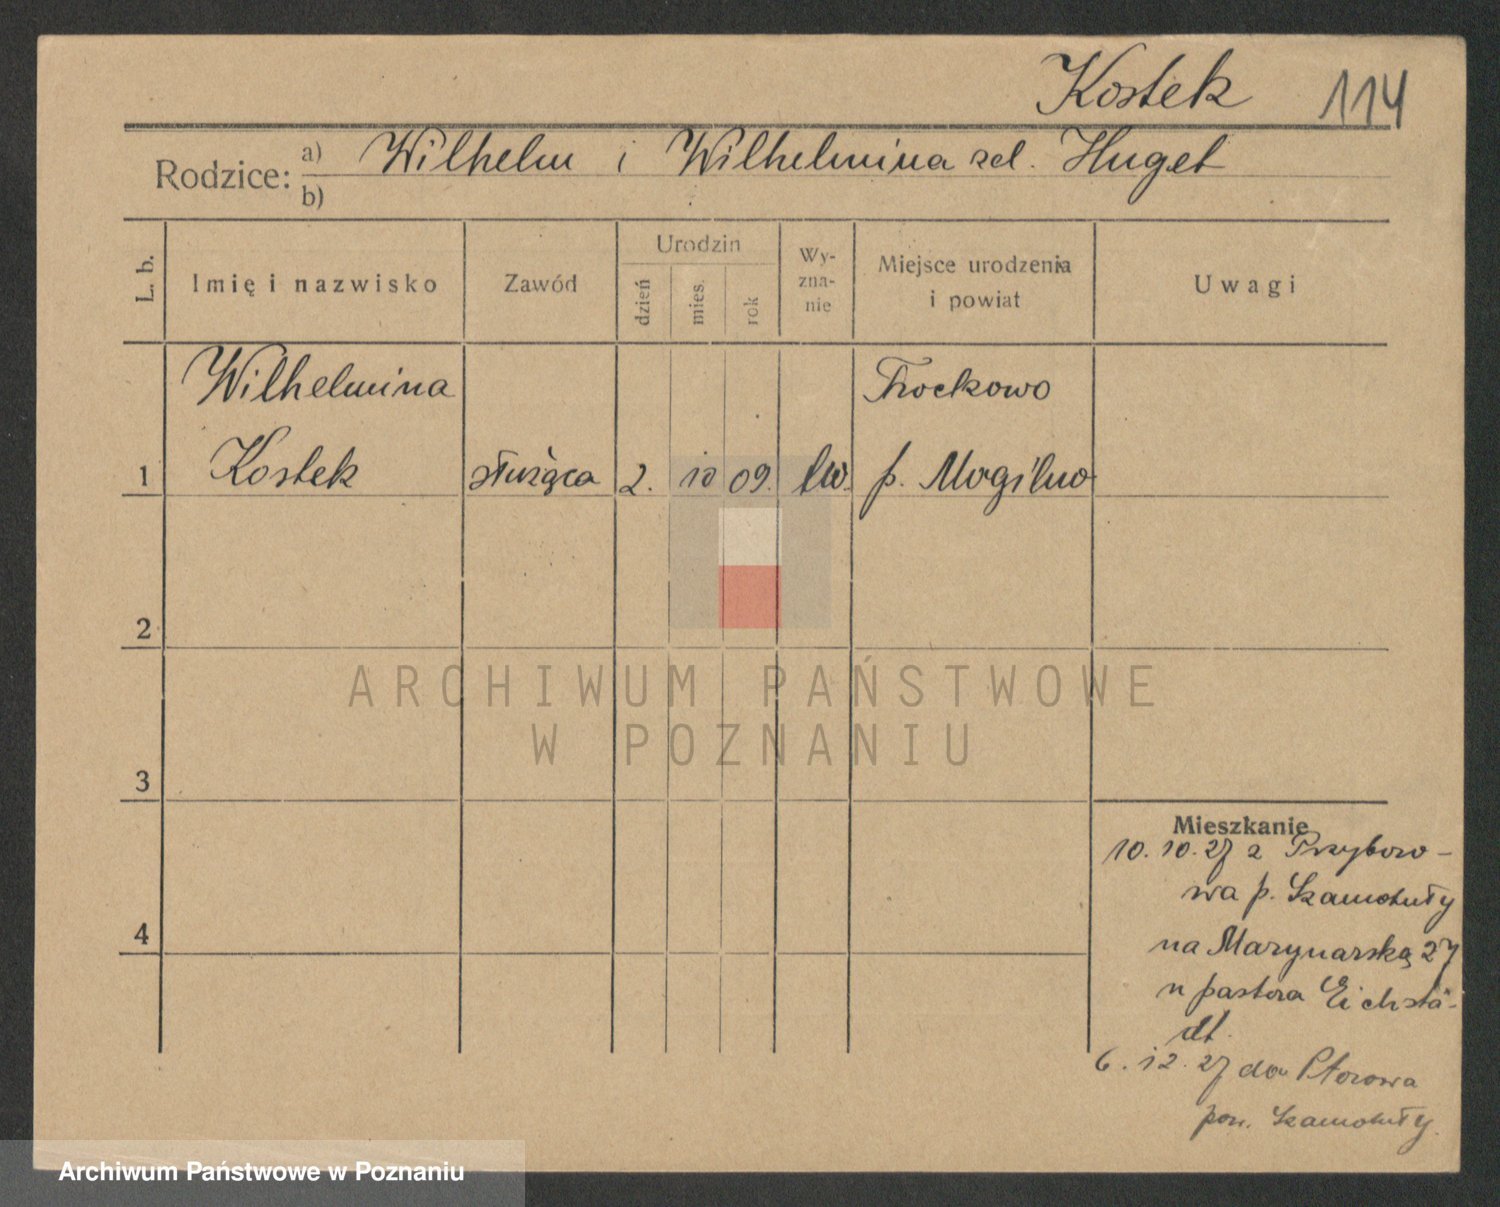 Kostek 114
Rodzice: a) Wilhelm i Wilhelmina zd. Huget
b)
L. b. Imię i nazwisko Zawód Urodzin dzień mies. rok Wyzna-nie Miejsce urodzenia i powiat Uwagi
Wilhelmina Trockowo
1 Kostek służąca 2. 10 09. ew. p. Mogilno
2
ARCHIWUM PAŃSTWOWE
W POZNANIU
3
Mieszkanie
10. 10. 27 z Przyboro-
wa p. Szamotuły
4
na Marynarską 27
u pastora Eichstä-
dt.
6. 12. 27 do Ptorowa
pow. Szamotuły.
Archiwum Państwowe w Poznaniu